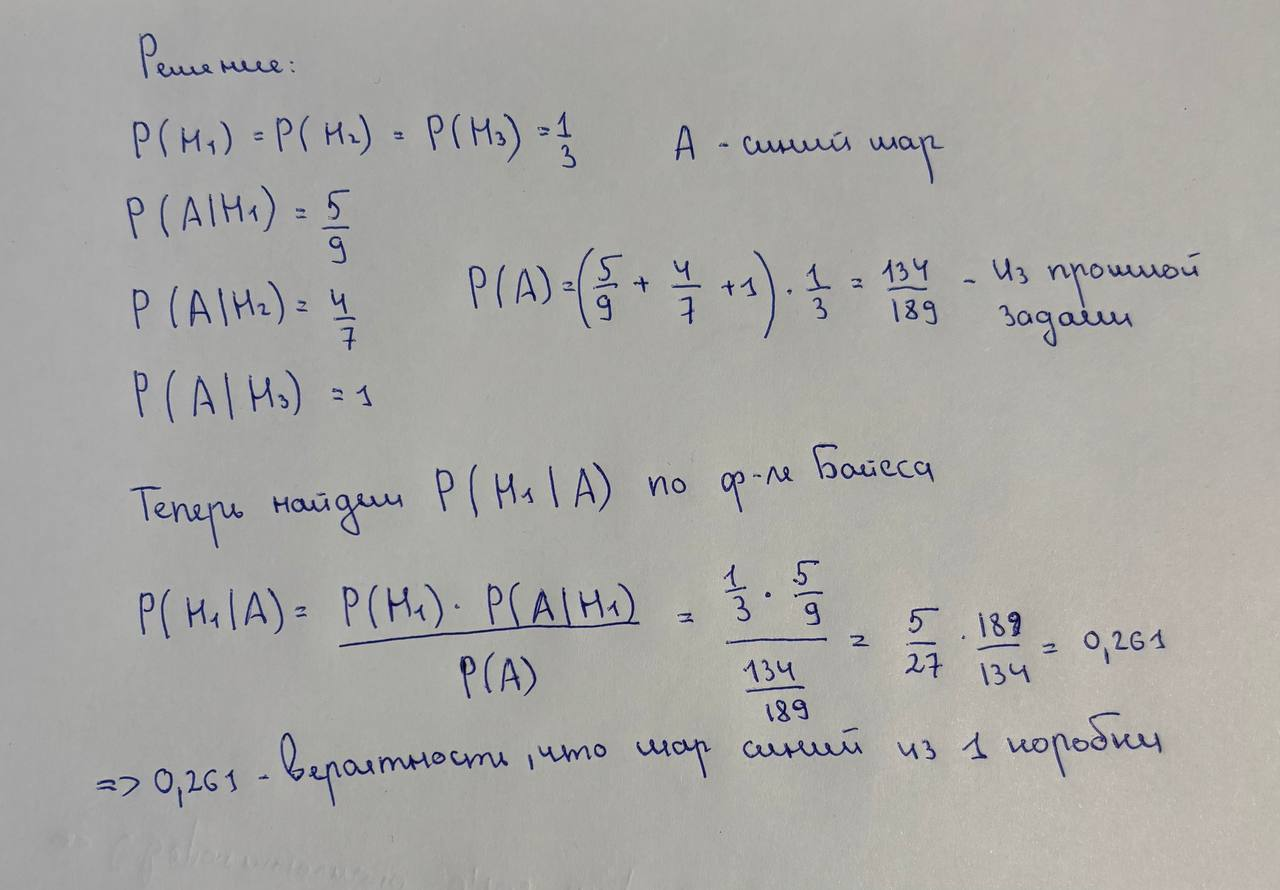 Решение:
P(H₁) = P(H₂) = P(H₃) = 1/3 A - синий шар
P(A|H₁) = 5/9
P(A|H₂) = 4/7
P(A) = (5/9 + 4/7 + 1) · 1/3 = 134/189 - Из прошлой
задачи
P(A|H₃) = 1
Теперь найдем P(H₁|A) по ф-ле Байеса
P(H₁|A) = P(H₁) · P(A|H₁) / P(A) = 1/3 · 5/9 / 134/189 = 5/27 · 189/134 = 0,261
=> 0,261 - вероятность, что шар синий из 1 коробки